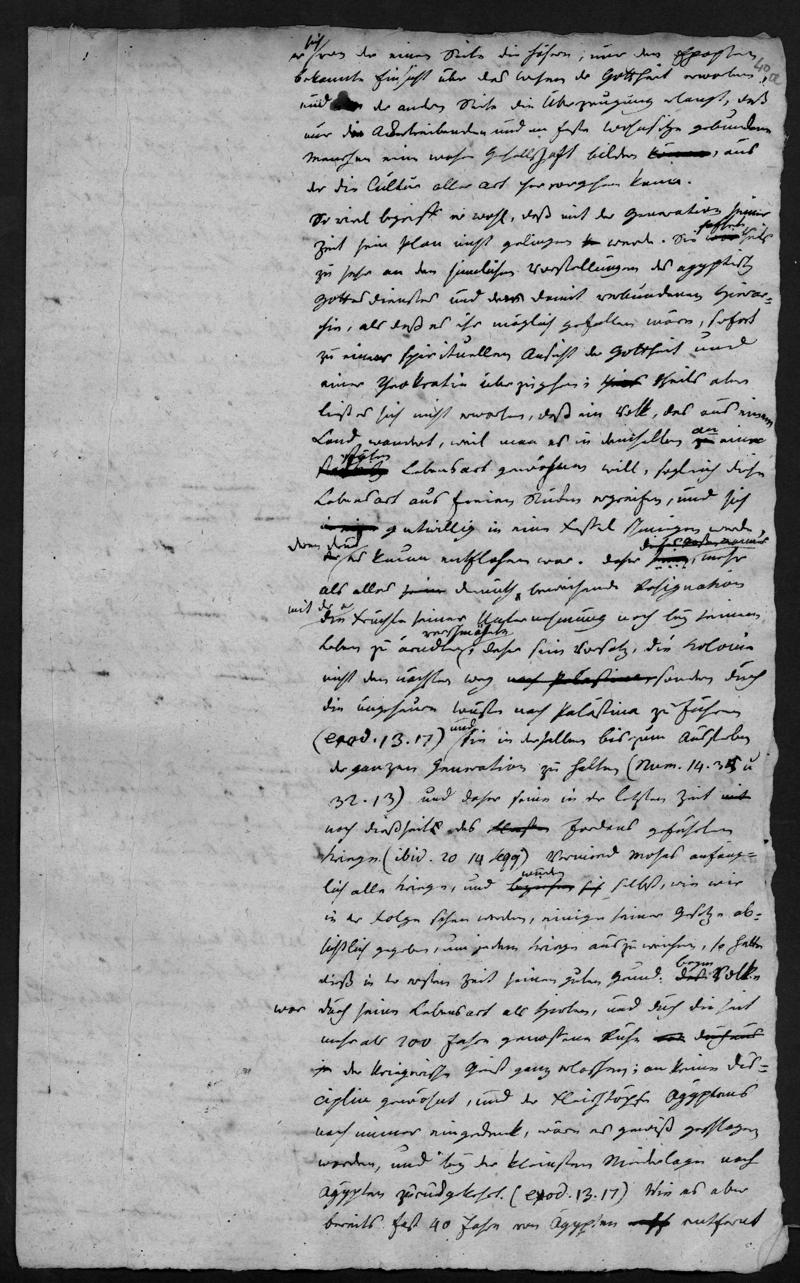 sich
er von der einen Seite die höhere, nur den Epopten
40a
bekannte Einsicht über das Wesen der Gottheit erworben,
und der andern Seite die Überzeugung erlangt, daß
nur die Ackertreibenden und an feste Wohnsitze gebundene
Menschen eine wahre Gesellschaft bilden können, aus
der die Cultur aller Art hervorgehen kann.
So viel begriff er wohl, daß mit der Generation seiner
Zeit sein Plan nicht gelingen werde. Sie theils
zu sehr an den sinnlichen Vorstellungen des ägyptisch
Gottesdienstes und der damit verbundenen Hierar=
chie, als daß es ihr möglich gefallen wäre, sofort
zu einer spirituellen Ansicht der Gottheit und
einer Theokratie überzugehen; theils aber
ließ es sich nicht erwarten, daß ein Volk, das aus einem
Land wandert, weil man es in demselben an eine
Lebensart gewöhnen will, sogleich diese
Lebensart aus freien Stücken ergreifen, und sich
gutwillig in eine Fessel schmiegen werde,
deren Druck
es kaum entflohen war. Daher mehr
als alles Demuth beweisende Resignation
mit der er
die Früchte seiner Unternehmung noch bey seinem
verschmähete
Leben zu ärndten, daher sein Vorsatz, die Kolonie
nicht den nächsten Weg nach Palästina sondern durch
die ungeheure Wüste nach Palästina zu führen
(exod. 13. 17) und sie in derselben bis zum Aussterben
der ganzen Generation zu halten (Num. 14. 35 u
32. 13) und daher seine in der letzten Zeit
noch dießseits des Jordans geführten
Kriege (ibid. 20 14 sqq) Vermied Moses anfäng=
lich alle Kriege, und wurden selbst, wie wir
in der Folge sehen werden, einige seiner Gesetze ab=
sichtlich gegeben, um jedem Kriege auszuweichen, so hatte
dieß in der ersten Zeit seinen guten Grund. Volke
war durch seine Lebensart als Hirten, und durch die seit
mehr als 200 Jahre genossene Ruhe durchaus
der kriegerische Geist ganz erloschen; an keine Dis=
ciplin gewöhnt, und der Fleischtöpfe Ägyptens
noch immer eingedenk, wäre es gewiß geschlagen
worden, und bey der kleinsten Niederlage nach
Ägypten zurückgekehrt. (exod. 13. 17) Wie es aber
bereits fast 40 Jahre von Ägypten entfernt